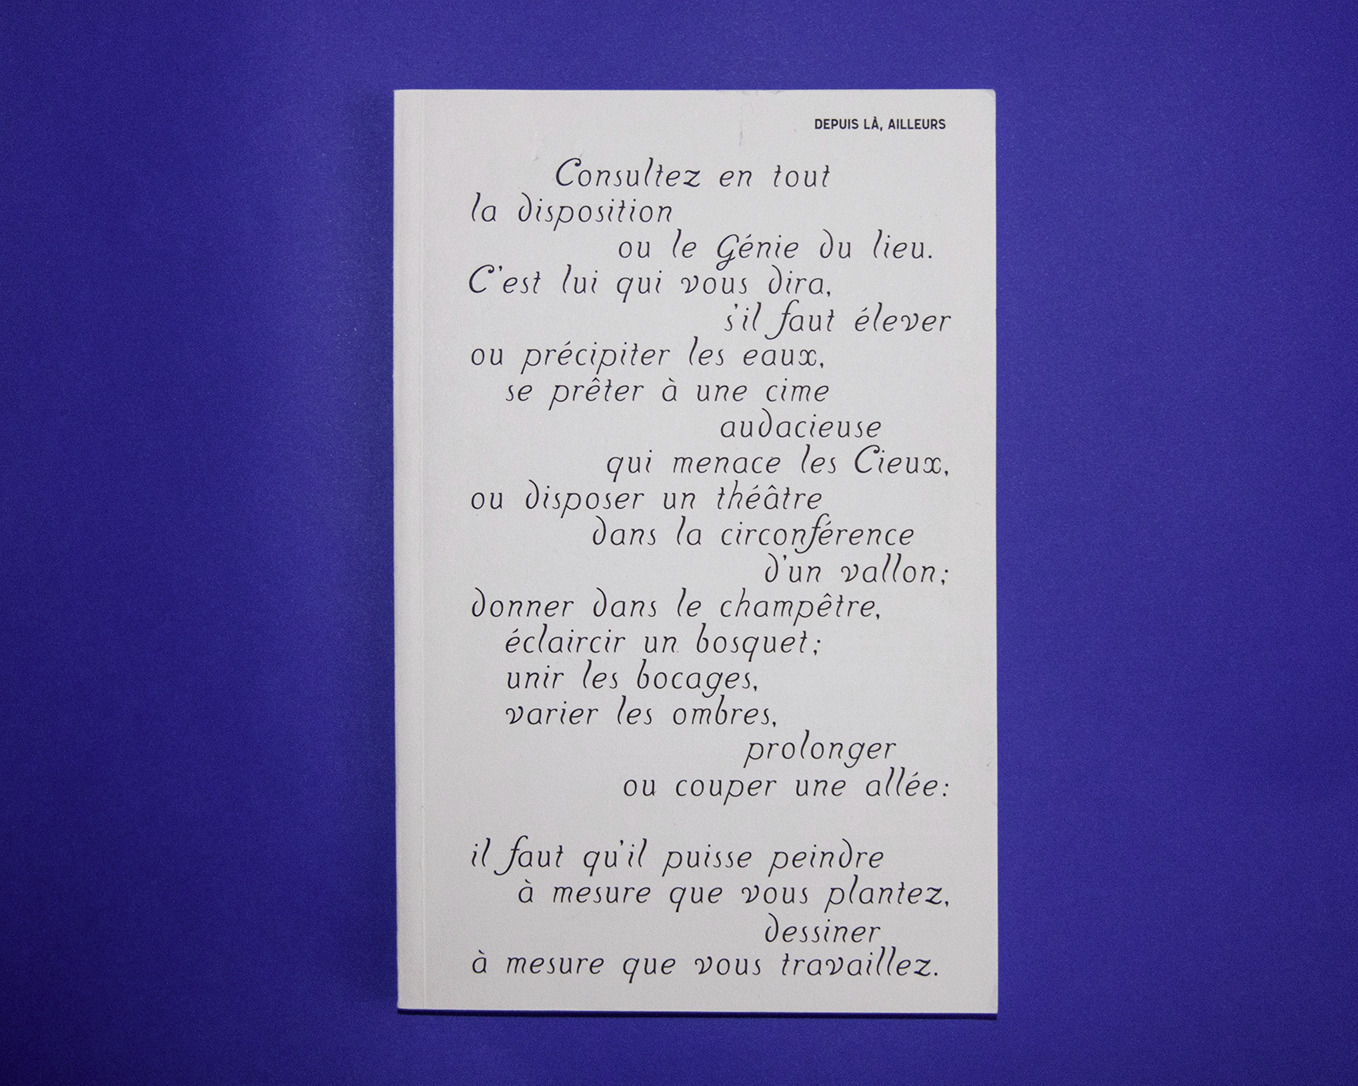 DEPUIS LÀ, AILLEURS
Consultez en tout
la disposition
ou le Génie du lieu.
C'est lui qui vous dira,
s'il faut élever
ou précipiter les eaux,
se prêter à une cime
audacieuse
qui menace les Cieux,
ou disposer un théâtre
dans la circonférence
d'un vallon;
donner dans le champêtre,
éclaircir un bosquet;
unir les bocages,
varier les ombres,
prolonger
ou couper une allée:
il faut qu'il puisse peindre
à mesure que vous plantez,
dessiner
à mesure que vous travaillez.